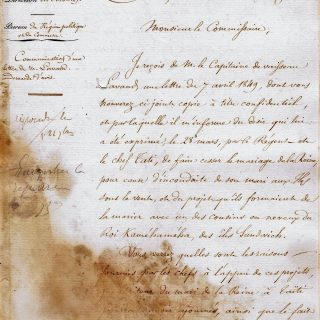 Bureau du Régime politique
et du Commerce.
Communication d'une
lettre de M. Lavaud.
Demande d'avis.
Monsieur le Commissaire,
Je reçois de M. le Capitaine de vaisseau
Lavaud, une lettre du 7 avril 1849, dont vous
trouverez ci joint copie à titre confidentiel,
et par laquelle il m'informe du désir qui lui
a été exprimé, le 28 mars, par le Régent et
le chef Tati, de faire casser le mariage de la Reine
pour cause d'inconduite de son mari aux Iles
sous le vent, et du projet qu'ils formaient de
la marier avec un des cousins ou neveux du
Roi Kaméhaméha, des îles Sandwich.
Vous verrez quelles sont les raisons
fournies par les chefs à l'appui de ces projets,
du mari de la Reine à
ainsi que le fait